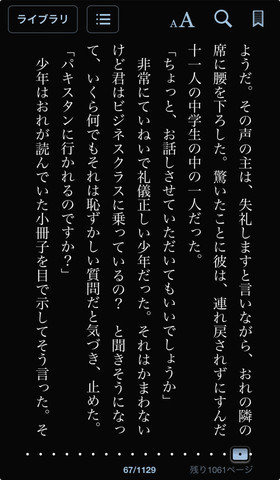 ライブラリ
AA
ようだ。その声の主は、失礼しますと言いながら、おれの隣の
席に腰を下ろした。驚いたことに彼は、連れ戻されずにすんだ
十一人の中学生の中の一人だった。
「ちょっと、お話しさせていただいてもいいでしょうか」
非常にていねいで礼儀正しい少年だった。それはかまわない
けど君はビジネスクラスに乗っているの？　と聞きそうになっ
て、いくら何でもそれは恥ずかしい質問だと気づき、止めた。
「パキスタンに行かれるのですか？」
少年はおれが読んでいた小冊子を目で示してそう言った。そ
67/1129
残り1061ページ